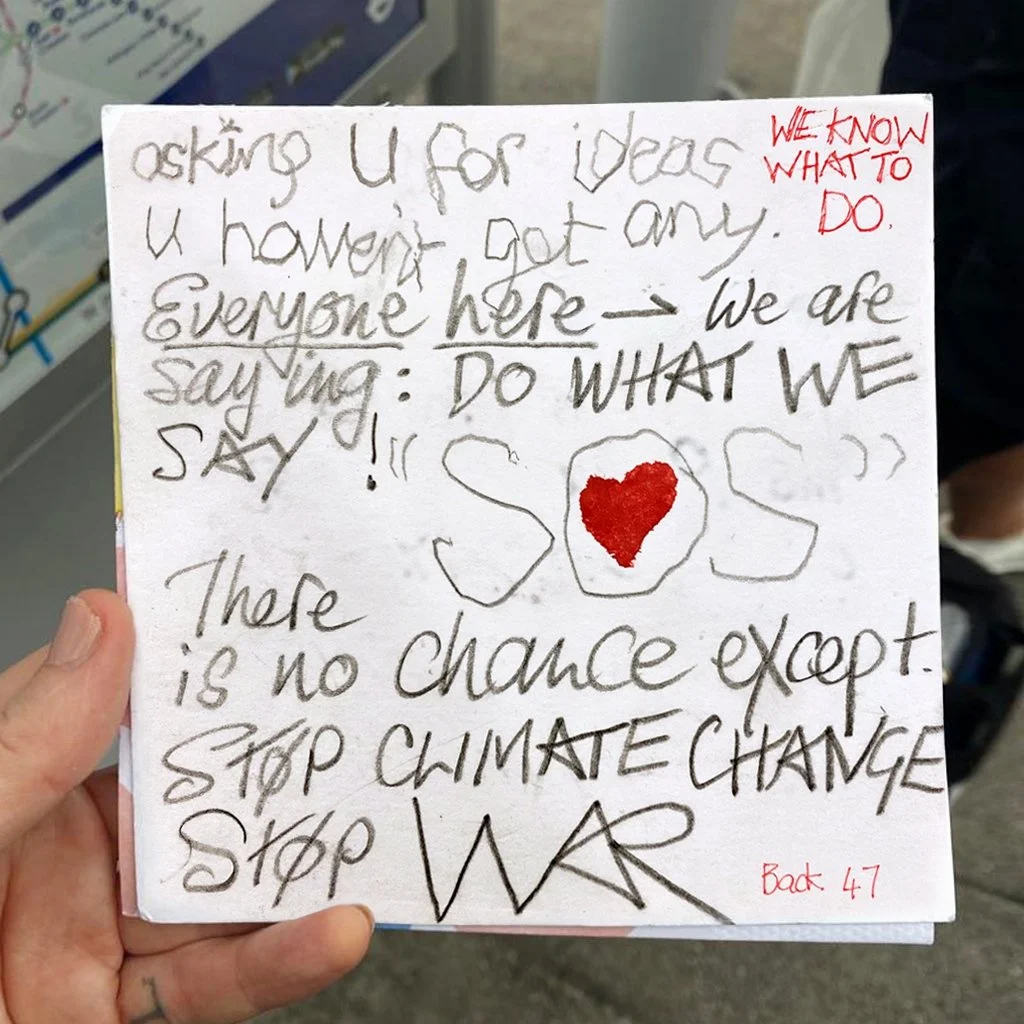 asking U for ideas
WE KNOW
WHAT TO
DO.
U haven't got any.
Everyone here → We are
saying: DO WHAT WE
SAY ! "SOS"
There
is no chance except.
STØP CLIMATE CHANGE
STØP WAR
Back 47